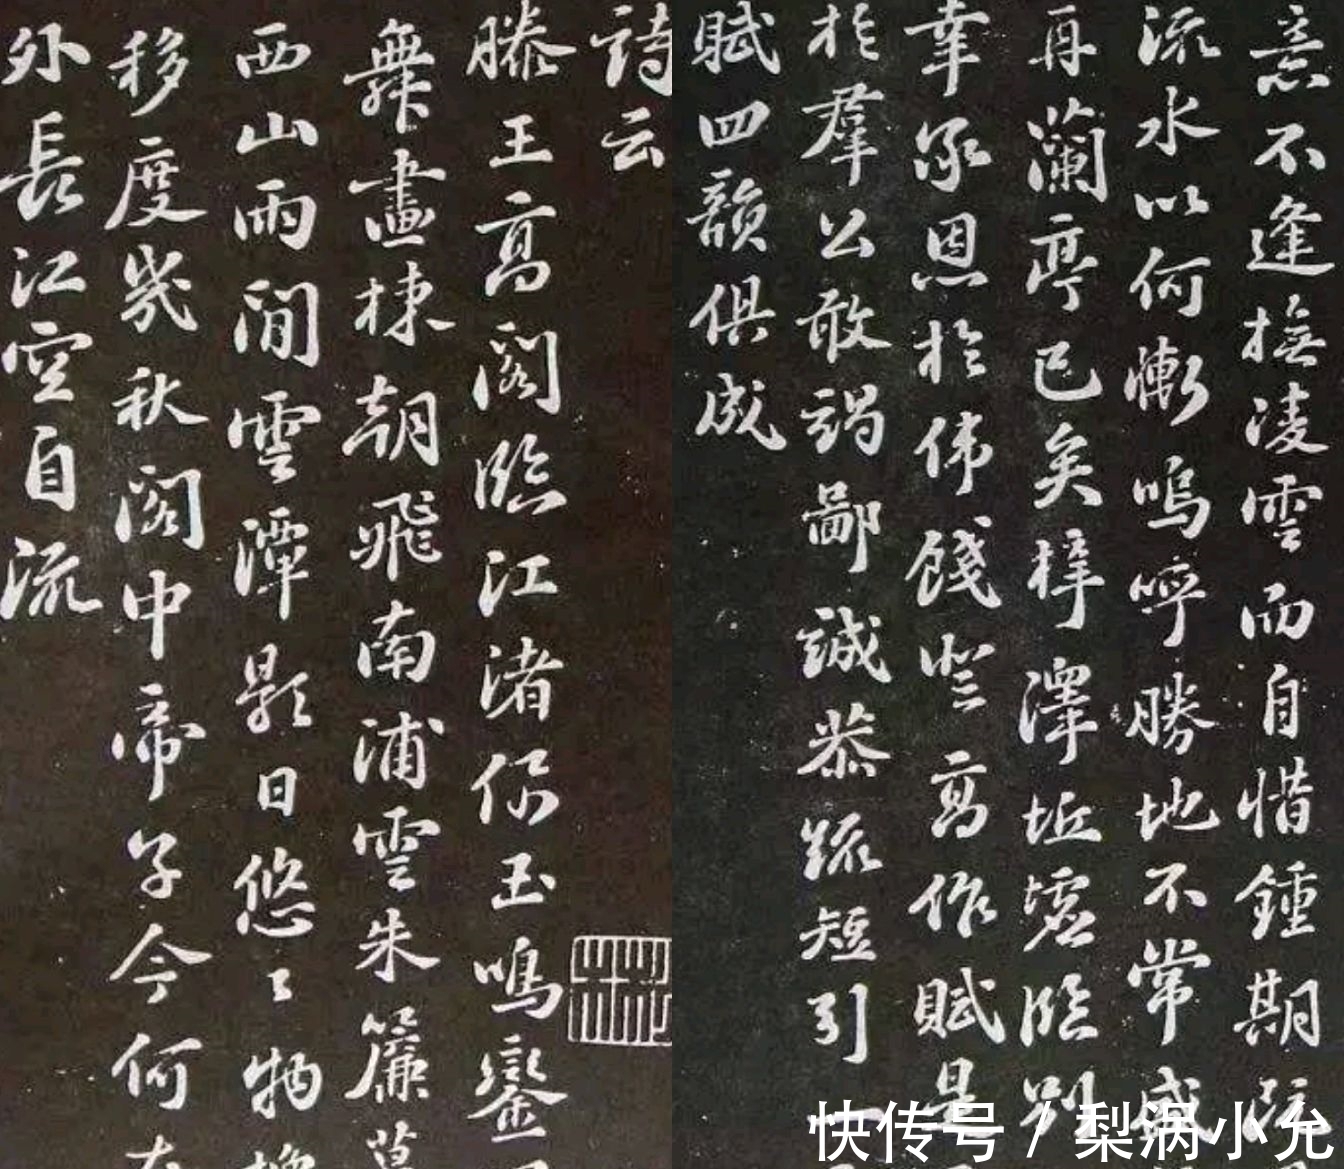 意不逢撫凌雲而自惜鍾期既
流水以何慚嗚呼勝地不常盛
再蘭亭已矣梓澤坵墟臨別
幸承恩於偉餞登高作賦是
於羣公敢竭鄙誠恭疏短引一
賦四韻俱成
詩云
滕王高閣臨江渚佩玉鳴鑾
舞畫棟朝飛南浦雲朱簾暮
西山雨閒雲潭影日悠〻物換
移度幾秋閣中帝子今何在
外長江空自流
快传号 / 梨涡小允